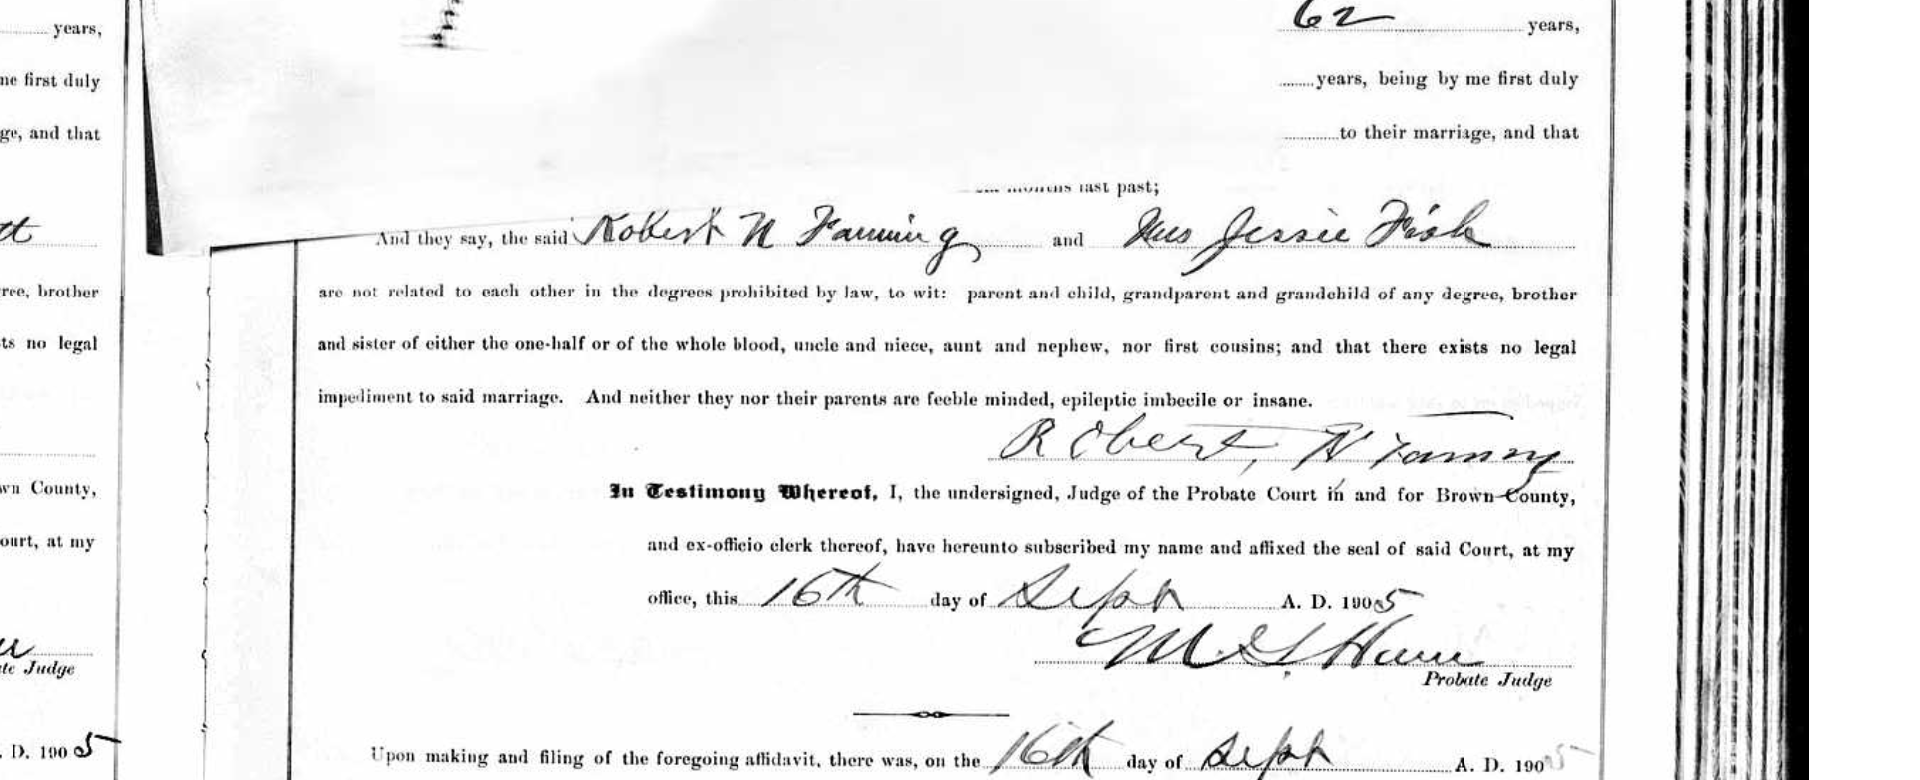 years,
62 years,
ne first duly
years, being by me first duly
ge, and that
to their marriage, and that
last past;
And they say, the said Robert N Fanning and Mrs Jessie Fish
ree, brother
are not related to each other in the degrees prohibited by law, to wit: parent and child, grandparent and grandchild of any degree, brother
ts no legal
and sister of either the one-half or of the whole blood, uncle and niece, aunt and nephew, nor first cousins; and that there exists no legal
impediment to said marriage. And neither they nor their parents are feeble minded, epileptic imbecile or insane.
Robert, N Fanning
wn County,
In Testimony Whereof, I, the undersigned, Judge of the Probate Court in and for Brown County,
ourt, at my
and ex-officio clerk thereof, have hereunto subscribed my name and affixed the seal of said Court, at my
office, this 16th day of Sept A. D. 1905
te Judge
Probate Judge
. D. 1905
Upon making and filing of the foregoing affidavit, there was, on the 16th day of Sept A. D. 1905